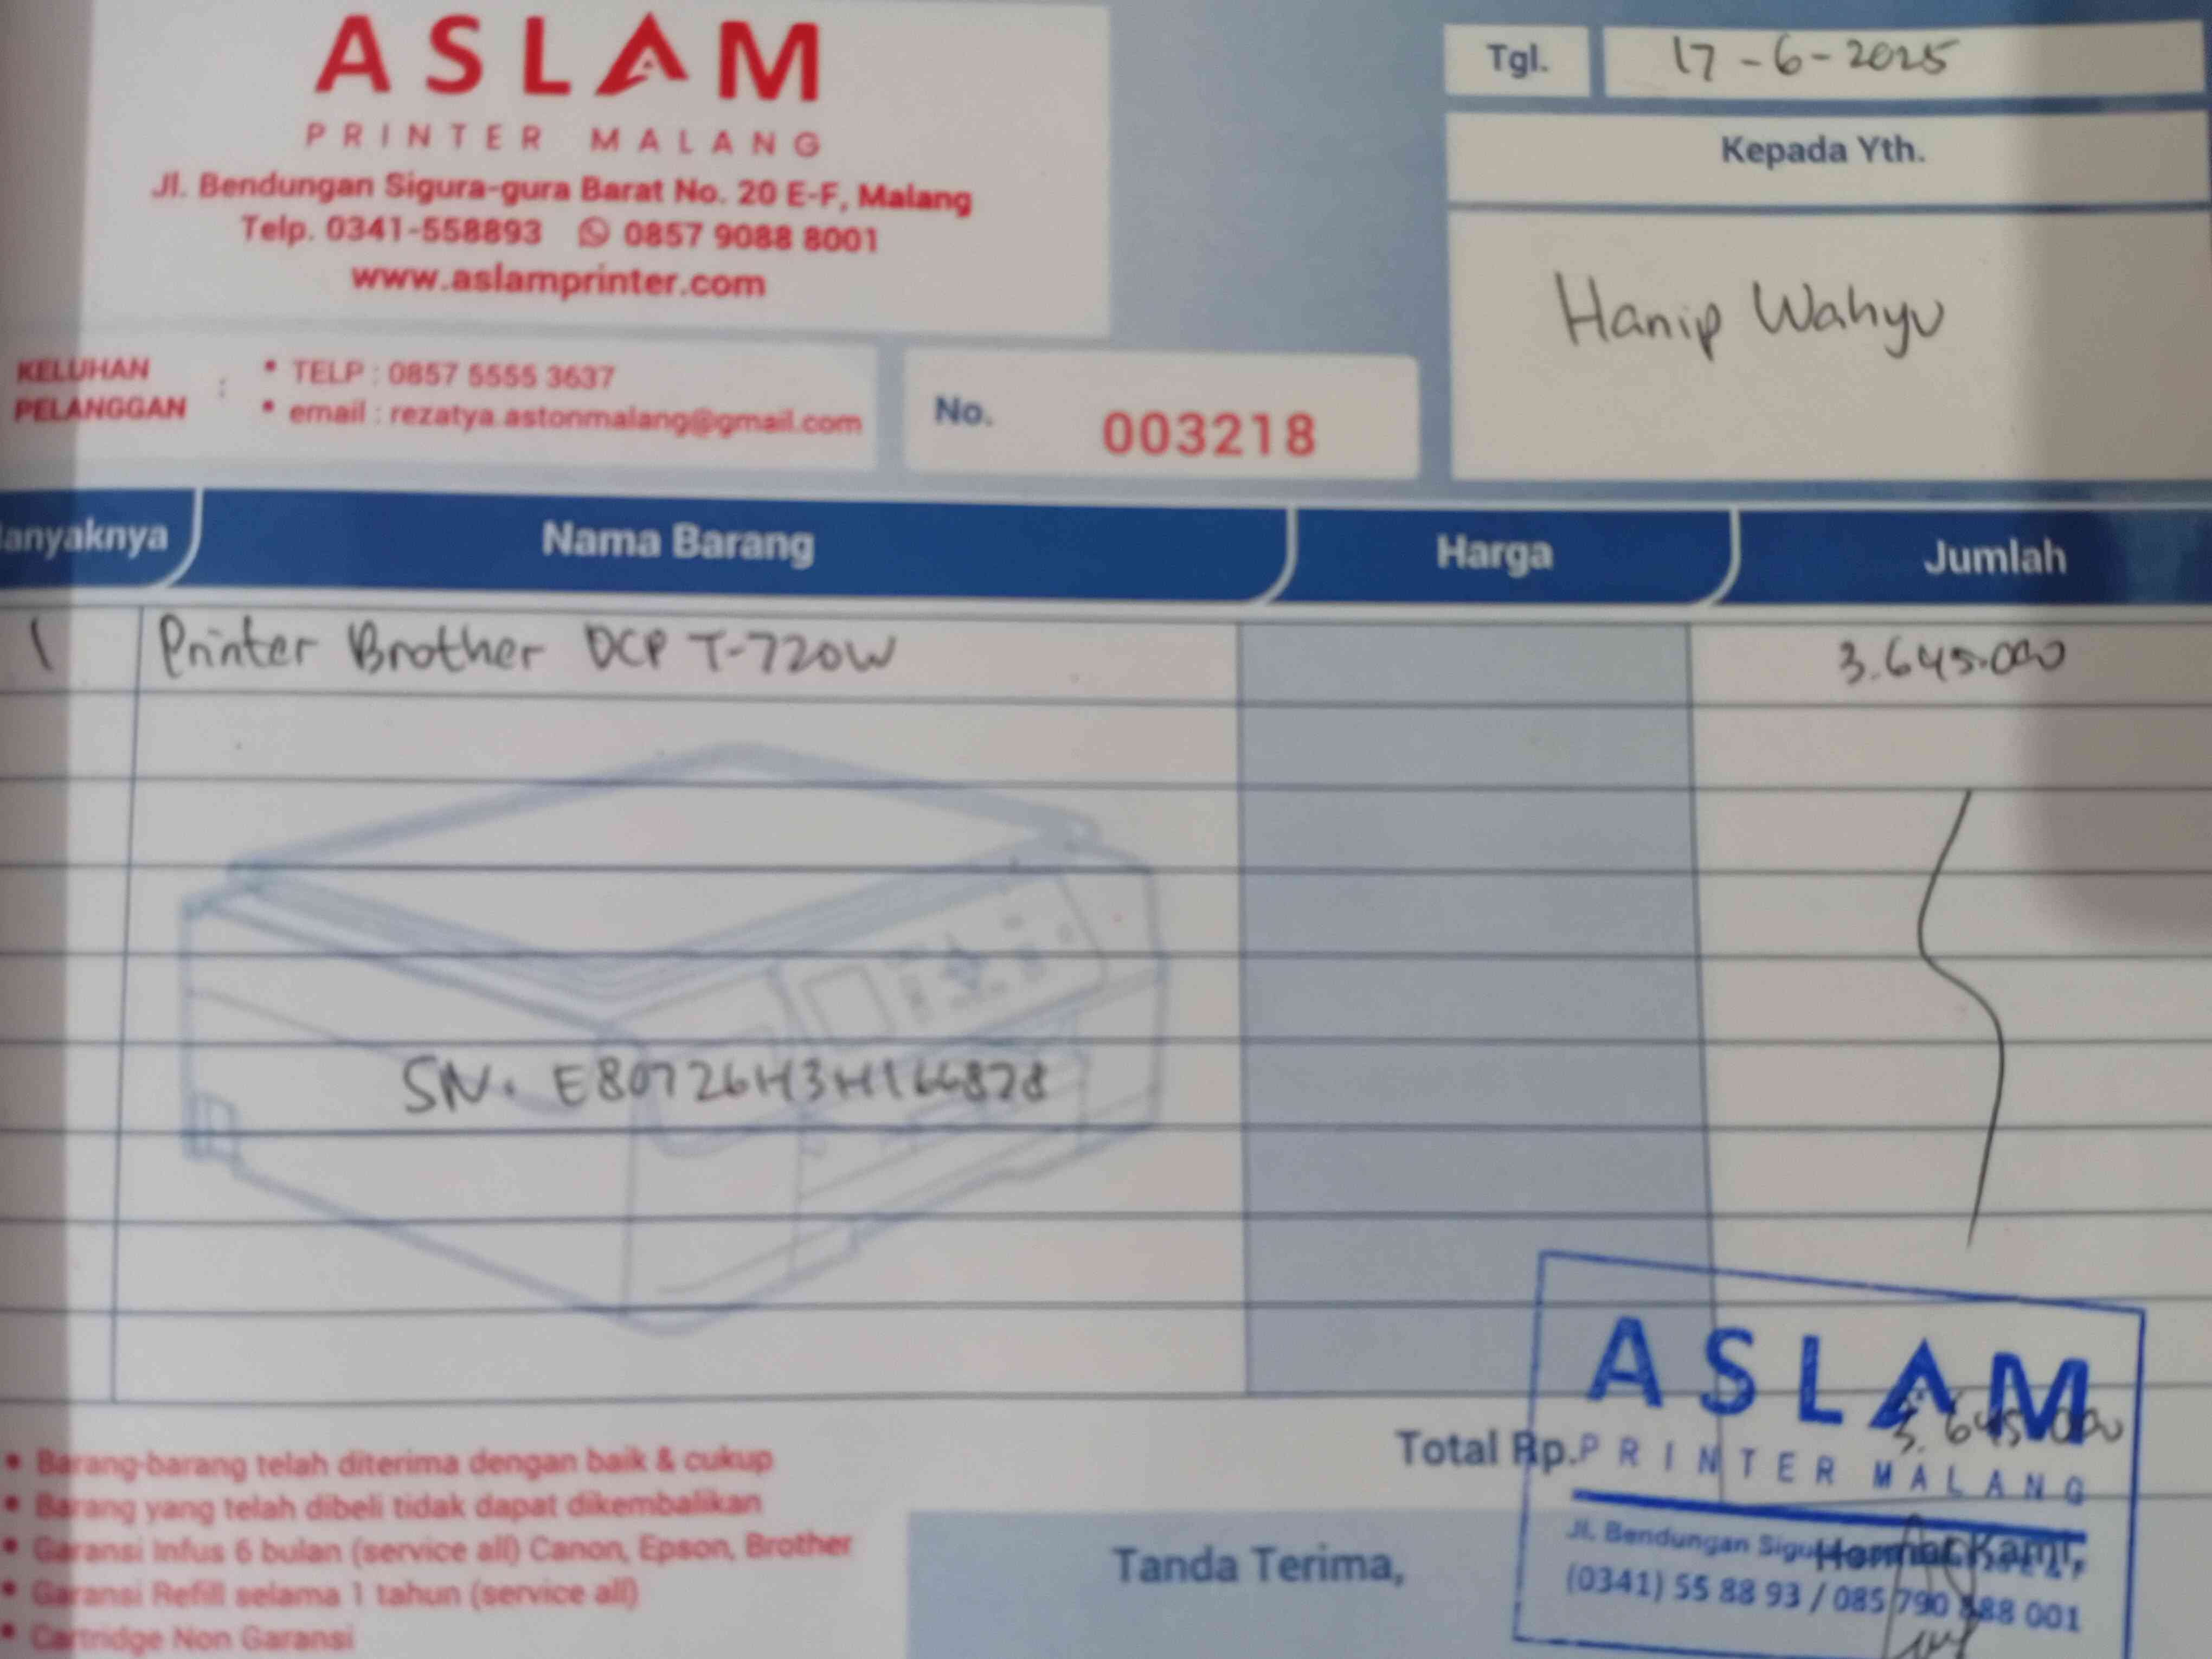 ASLAM
PRINTER MALANG
Jl. Bendungan Sigura-gura Barat No. 20 E-F, Malang
Telp. 0341-558893 0857 9088 8001
www.aslamprinter.com
Tgl. 17-6-2025
Kepada Yth.
Hanip Wahyu
KELUHAN PELANGGAN :
• TELP : 0857 5555 3637
• email : rezatya.astonmalang@gmail.com
No. 003218
anyaknya Nama Barang Harga Jumlah
1 Printer Brother DCP T-720W 3.645.000
SN. E80726H3H166878
• Barang-barang telah diterima dengan baik & cukup
• Barang yang telah dibeli tidak dapat dikembalikan
• Garansi Infus 6 bulan (service all) Canon, Epson, Brother
• Garansi Refill selama 1 tahun (service all)
• Cartridge Non Garansi
Total Rp. 3.645.000
Tanda Terima,
Hormat Kami,
ASLAM
PRINTER MALANG
Jl. Bendungan
(0341) 55 88 93 / 085 790 888 001